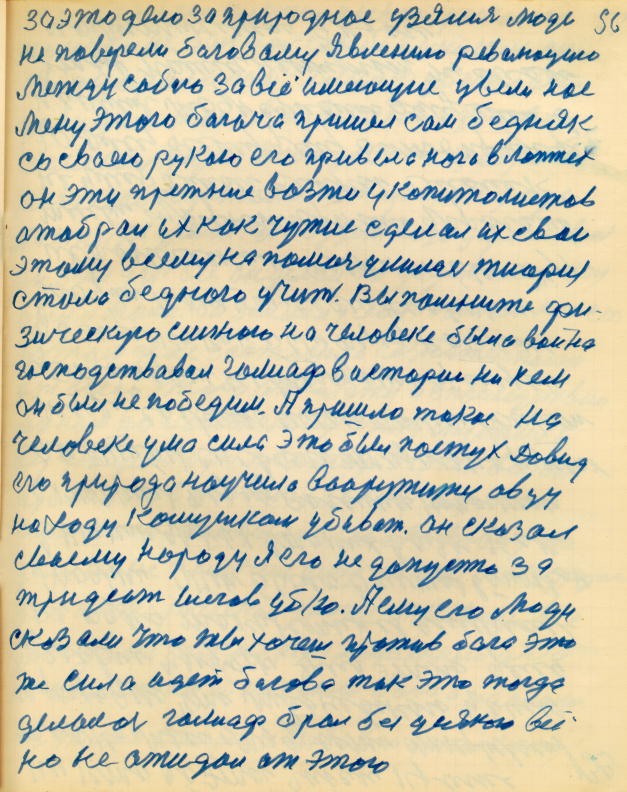 за это дело за природное взялия люде 56
не поверели баговому явлению революцыею
между собою за всё имеющие увели ное
мену этого багача пришел сам бедняк
со своею рукою его привела нога в лаптех
он эти прежние вазжи у копитолистов
атабрал их как чужие сделал их сваи
этому всему на помач явилас тиария
стала бедного учит. Вы помните фи-
зическую силного на человеке была война
господствавал галиаф в астории ни кем
он был не победим. А пришло такое на
человеке ума сила это был поступ Давид
его природа научила ваоружит овцу
на ходу камушкам убиват. он сказал
своему народу я его не допустю за
тридсат шегов убю. А ему его люди
сказали что ты хочеш против бога это
же сила идет багова так это тогда
делалос галиаф брал без усякого всё
но не ажидал от этого